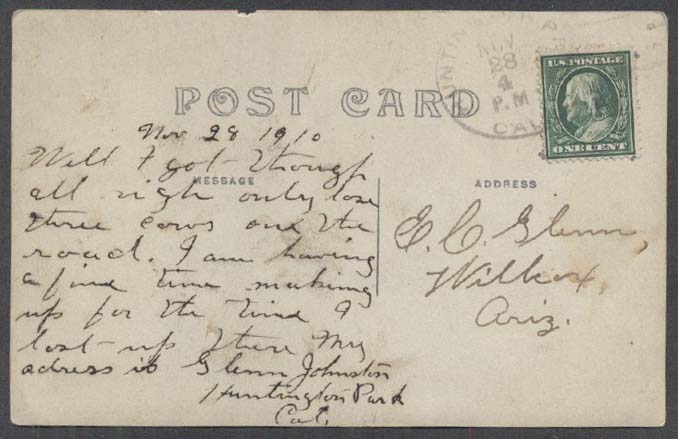 HUNTINGTON PARK
NOV
28
4
P.M
CAL
U.S. POSTAGE
ONE CENT
POST CARD
Nov 28 1910
MESSAGE
Well I got though
all righ only lose
three cows one the
road. I am having
a fine time making
up for the time I
lost up there My
adress is Glenn Johnston
Huntington Park
Cal.
ADDRESS
E. C. Glenn,
Willcox,
Ariz.